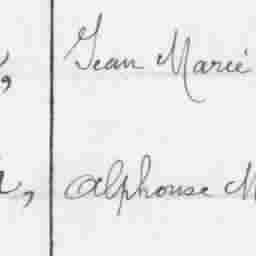 Jean Marié
Alphonse M